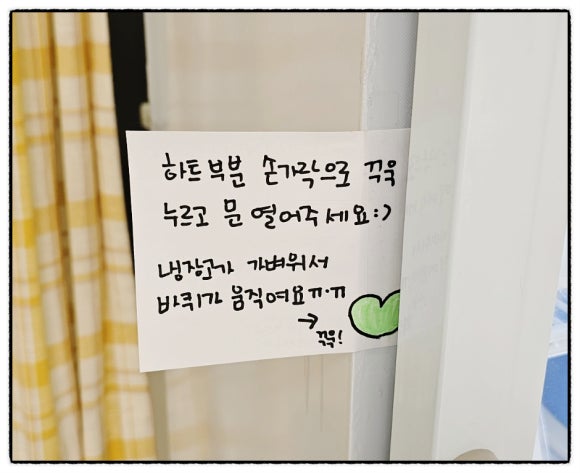 하트부분 손가락으로 꾸욱
누르고 문 열어주세요:)
냉장고가 가벼워서
바퀴가 움직여요ㅠ.ㅠ
→
꾸욱!